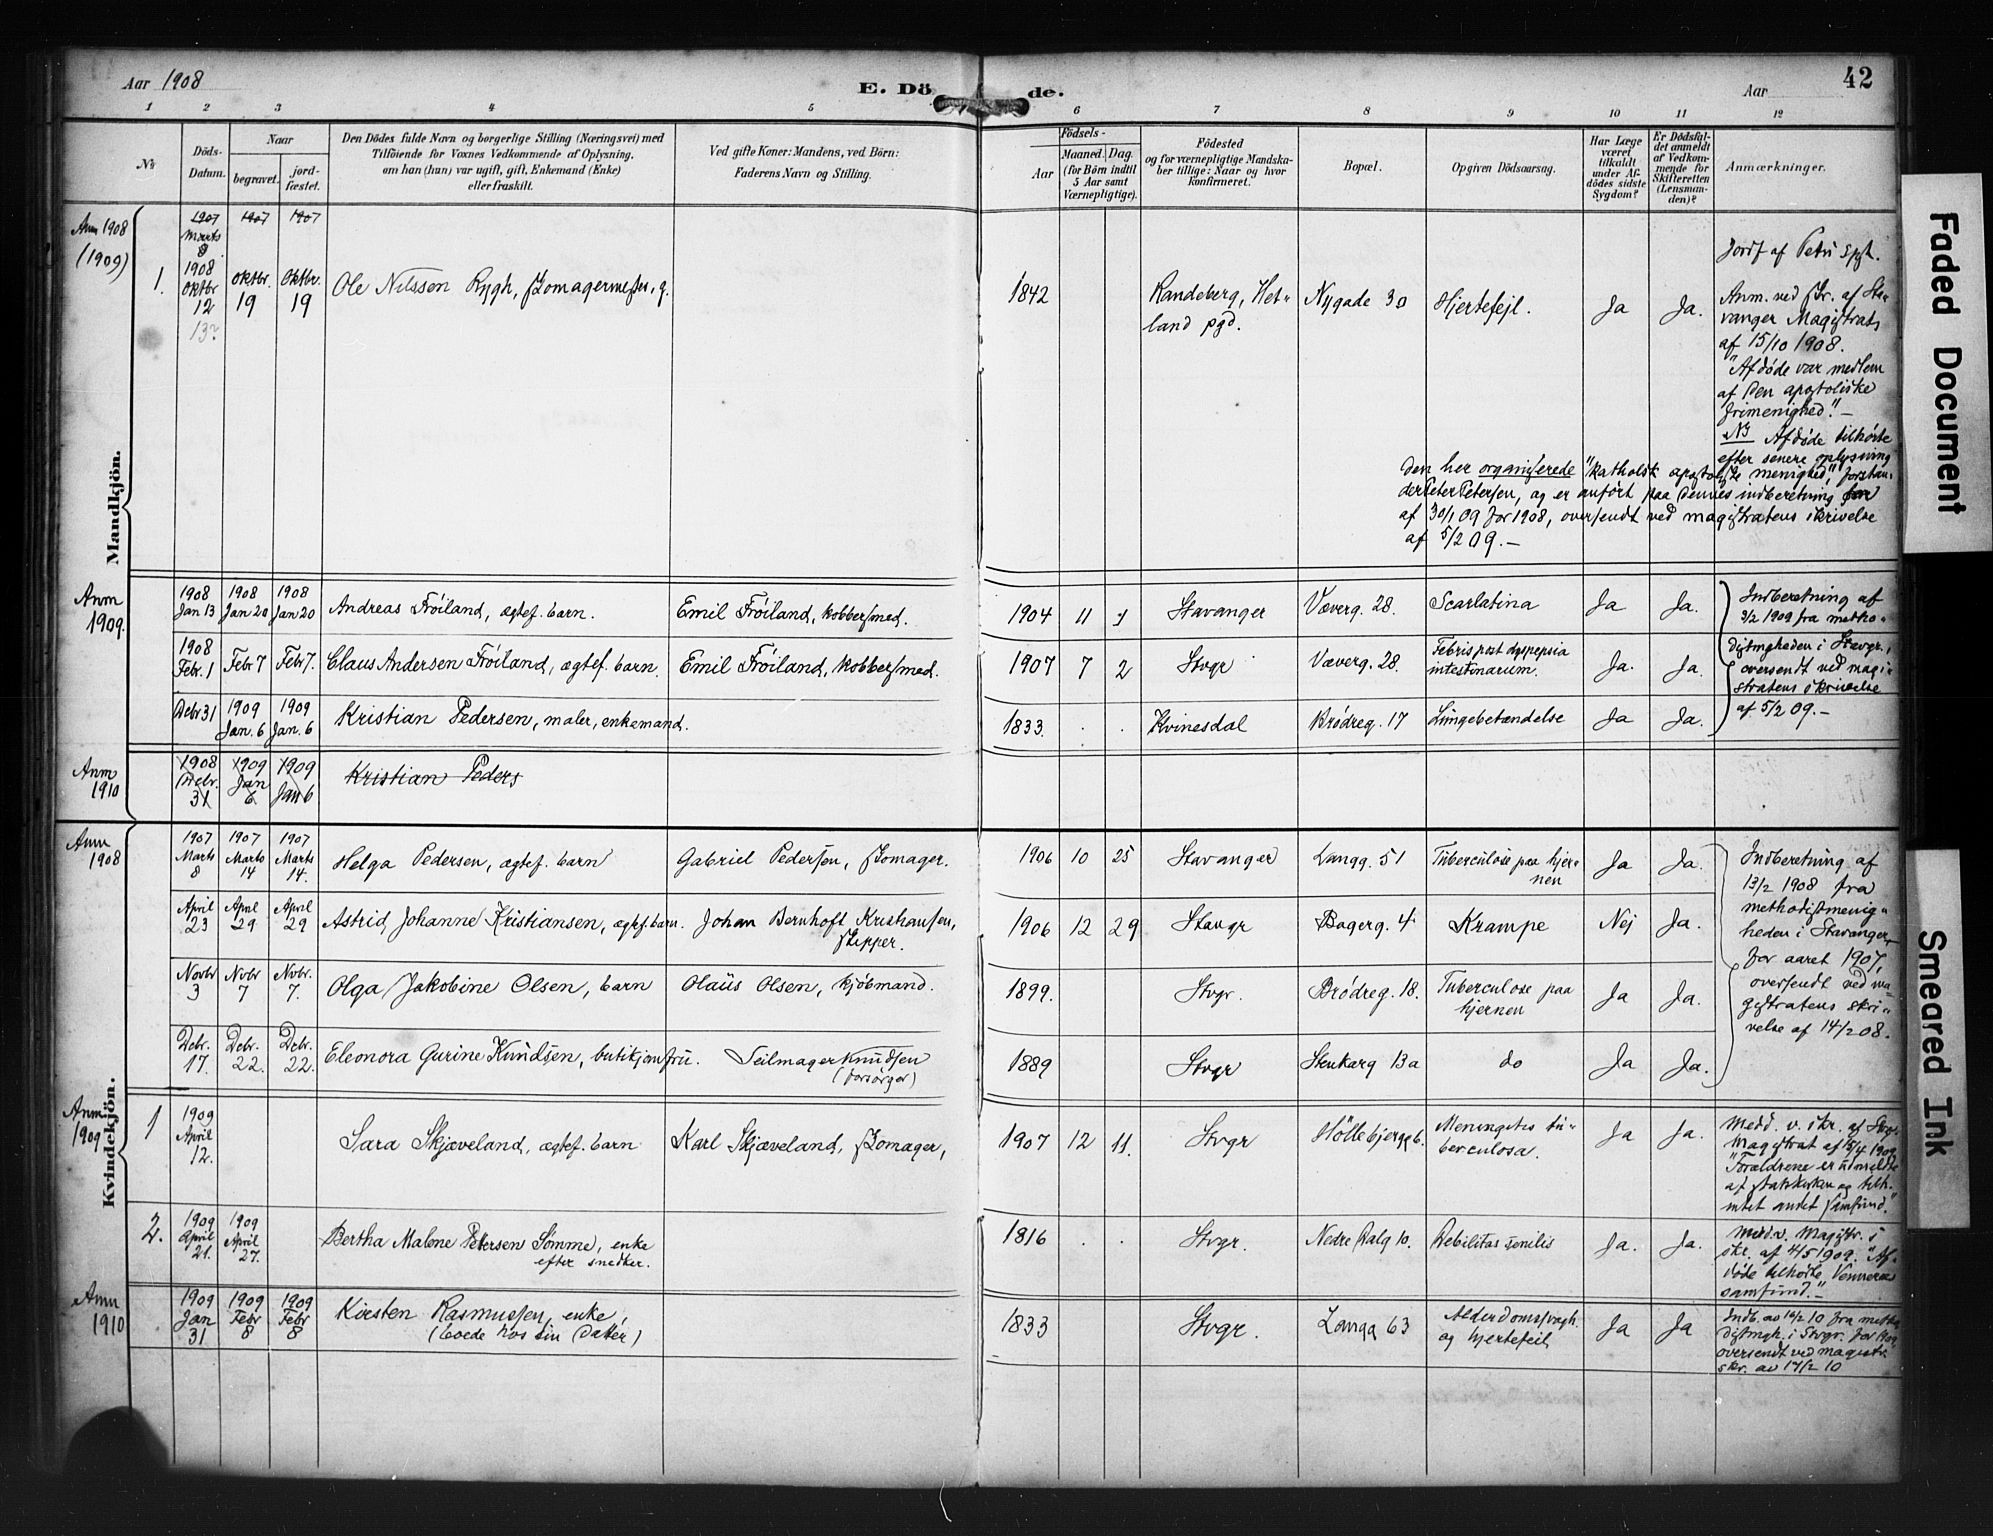 Aar 1908
E. Dö de.
Aar
42
1 2 3 4 5 6 7 8 9 10 11 12
No
Döds-
Datum.
Naar
begravet.
jord-
fæstet.
Den Dödes fulde Navn og borgerlige Stilling (Næringsvei) med
Tilföiende for Voxnes Vedkommende af Oplysning,
om han (hun) var ugift, gift, Enkemand (Enke)
eller fraskilt.
Ved gifte Koner: Mandens, ved Börn:
Faderens Navn og Stilling.
Födsels-
Aar
Maaned. Dag.
(for Börn indtil
5 Aar samt
Værnepligtige).
Födested
og for værnepligtige Mandska-
ber tillige: Naar og hvor
konfirmeret.
Bopæl.
Opgiven Dödsaarsag.
Har Læge
været
tilkaldt
under Af-
dödes sidste
Sygdom?
Er Dödsfal-
det anmeldt
af Vedkom-
mende for
Skifteretten
(Lensman-
den)?
Anmærkninger.
Mandkjön.
Anm 1908
(1909)
1907 1907 1907
Marts
8
1. 1908
Oktbr
12
13?
Oktbr.
19
Oktbr.
19
Ole Nilssen Rygh, skomagermester, g.
1842
Randeberg, Het-
land pgd.
Nygade 30
Hjertefejl.
Ja
Ja.
Jordf af Petri spr.
Anm. ved skr. af Sta-
vanger Magistrat
af 15/10 1908.
"Afdøde var medlem
af Den apostoliske
frimenighed." -
NB Afdøde tilhørte
efter senere oplysning
den her organiserede "katholsk apostoliske menighed", forstan-
der Peter Petersen, og er anført paa dennes indberetning for
af 30/1 09 for 1908, oversendt ved magistratens skrivelse
af 5/2 09. -
Anm
1909.
1908
Jan 13
1908
Jan 20
1908
Jan 20
Andreas Frøiland, ægtef. barn.
Emil Frøiland, kobbersmed.
1904 11 Stavanger Væverg. 28. Scarlatina Ja Ja.
Indberetning af
3/2 1909 fra metho-
distmgheden i Stavgr.,
oversendt ved magi-
stratens skrivelse
af 5/2 09. -
1908
Febr. 1 Febr 7 Febr 7.
Claus Andersen Frøiland, ægtef. barn.
Emil Frøiland, kobbersmed.
1907 7 2 Stvgr Væverg. 28. Febris post dyspepsia
intestinarum. Ja. Ja.
Debr 31
1909
Jan. 6
1909
Jan. 6
Kristian Pedersen, maler, enkemand.
1833. . . Kvinesdal Brødreg. 17 Lungebetændelse Ja Ja.
Anm
1910
1908
Debr.
31
1909
Jan
6
1909
Jan 6
Kristian Peders
Kvindekjön.
Anm
1908
1907
Marts
8
1907
Marts
14
1907
Marts
14.
Helga Pedersen, ægtef. barn
Gabriel Pedersen, skomager.
1906 10 25 Stavanger Langg. 51 Tuberculose paa hjer-
nen Ja Ja.
Indberetning af
13/2 1908 fra
methodistmenig-
heden i Stavanger
for aaret 1907,
oversendt ved ma-
gistratens skri-
velse af 14/2 08.
April
23
April
29
April
29
Astrid Johanne Kristiansen, ægtef. barn.
Johan Bernhoft Kristiansen,
skipper.
1906 12 29 Stavgr Bagerg. 4 Krampe Nej Ja.
Novbr
3
Nvbr
7
Nvbr.
7.
Olga Jakobine Olsen, barn
Olaüs Olsen, kjøbmand.
1899. Stvgr. Brødreg. 18. Tuberculose paa
hjernen Ja Ja.
Debr.
17.
Debr.
22.
Debr.
22.
Eleonora Gurine Knudsen, butikjomfru.
Seilmager Knudsen
(forsørger)
1889 Stvgr Stenkarg 13a do Ja Ja.
Anm.
1909
1
1909
April
12.
Sara Skjæveland, ægtef. barn
Karl Skjæveland, skomager,
1907 12 11. Stvgr Høllebjergg 6. Meningites tu-
berculosa. Ja Ja.
Medd. v. skr. af Stvgr.
Magistrat af 15/4 1909
"Forældrene er udmeldte
af statskirken og tilh.
intet andet samfund."
2.
1909
April
21.
1909
April
27.
Bertha Malene Petersen Sømme, enke
efter snedker.
1816 . . Stvgr. Nedre Dalg 10. Debilitas senilis Ja. Ja.
Medd. v. Magistr. s
skr. af 4/5 1909. "Af-
døde tilhørte Vennernes
samfund." -
Anm
1910
1909
Jan
31
1909
Febr
8
1909
Febr
8
Kirsten Rasmussen, enke
(boede hos sin datter)
1833 Stvgr. Langg 63 Alderdomssvagh.
og hjertefeil Ja Ja
Indb. av 16/2 10 fra metho-
distmgh. i Stvgr. for 1909
oversendt ved magistr.
skr. av 17/2 10
Faded Document
Smeared Ink